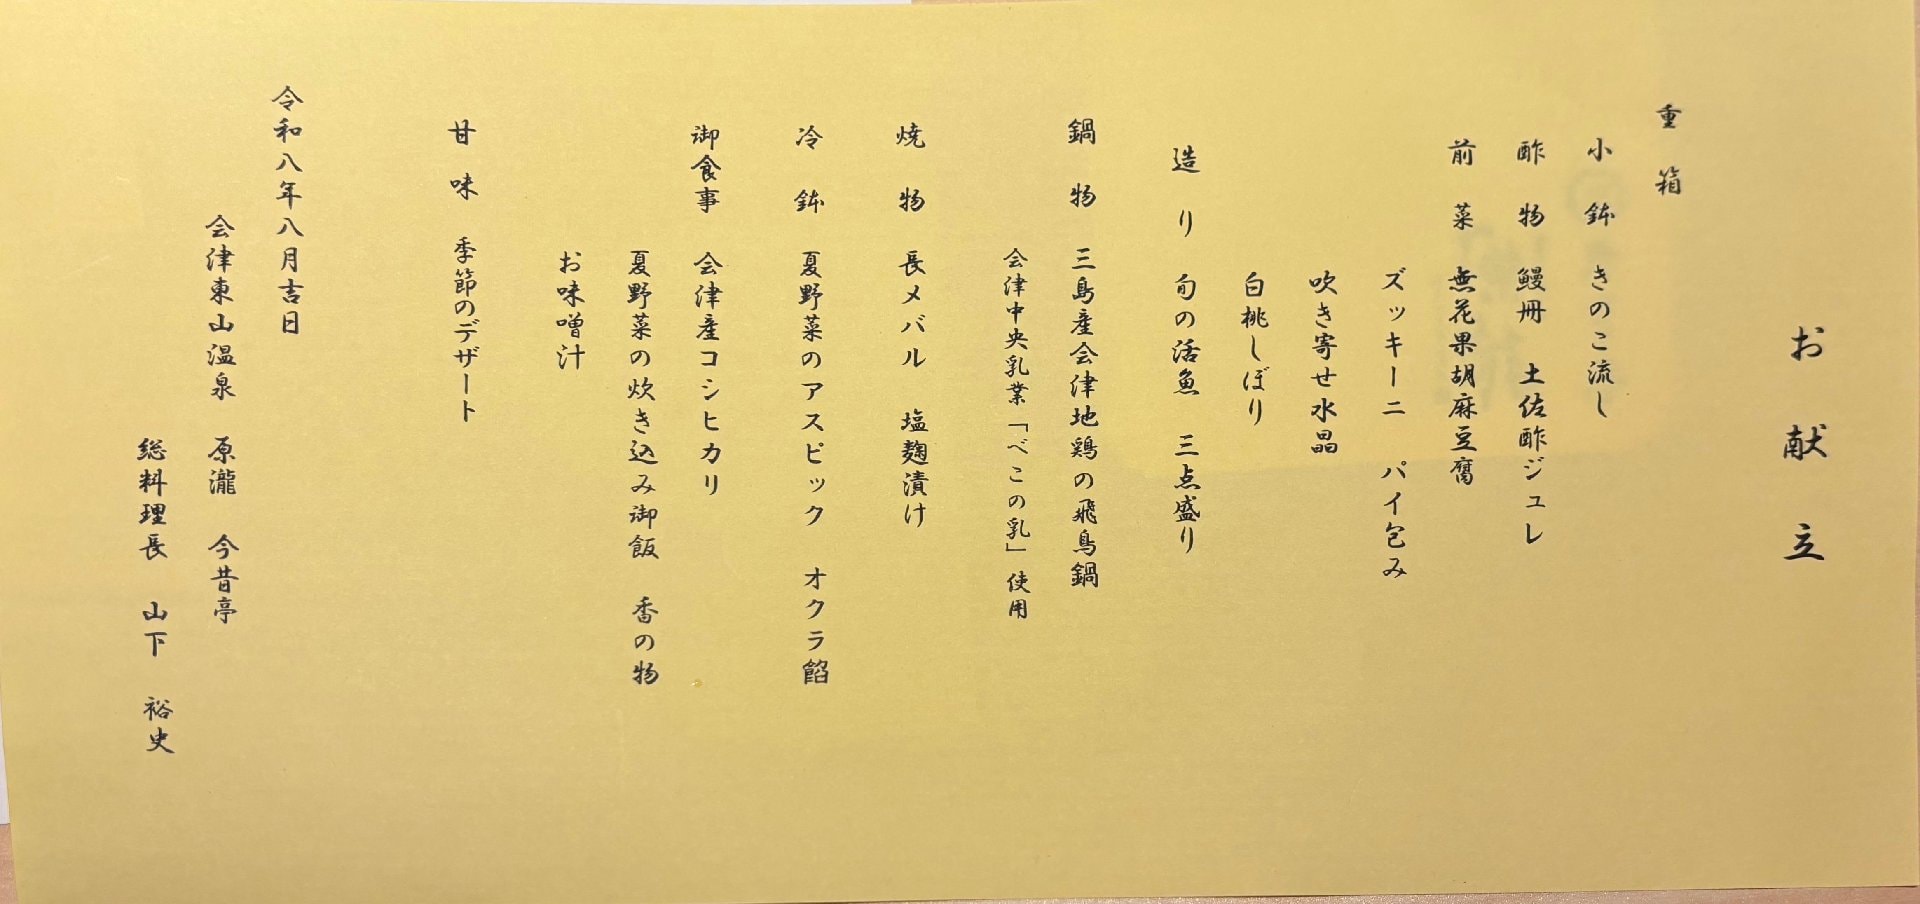 お献立
重箱
小鉢 きのこ流し
酢物 鰻冊 土佐酢ジュレ
前菜 無花果胡麻豆腐
ズッキーニ パイ包み
吹き寄せ水晶
白桃しぼり
造り 旬の活魚 三点盛り
鍋物 三島産会津地鶏の飛鳥鍋
会津中央乳業「べこの乳」使用
焼物 長メバル 塩麹漬け
冷鉢 夏野菜のアスピック オクラ餡
御食事 会津産コシヒカリ
夏野菜の炊き込み御飯 香の物
お味噌汁
甘味 季節のデザート
令和八年八月吉日
会津東山温泉 原瀧 今昔亭
総料理長 山下 裕史